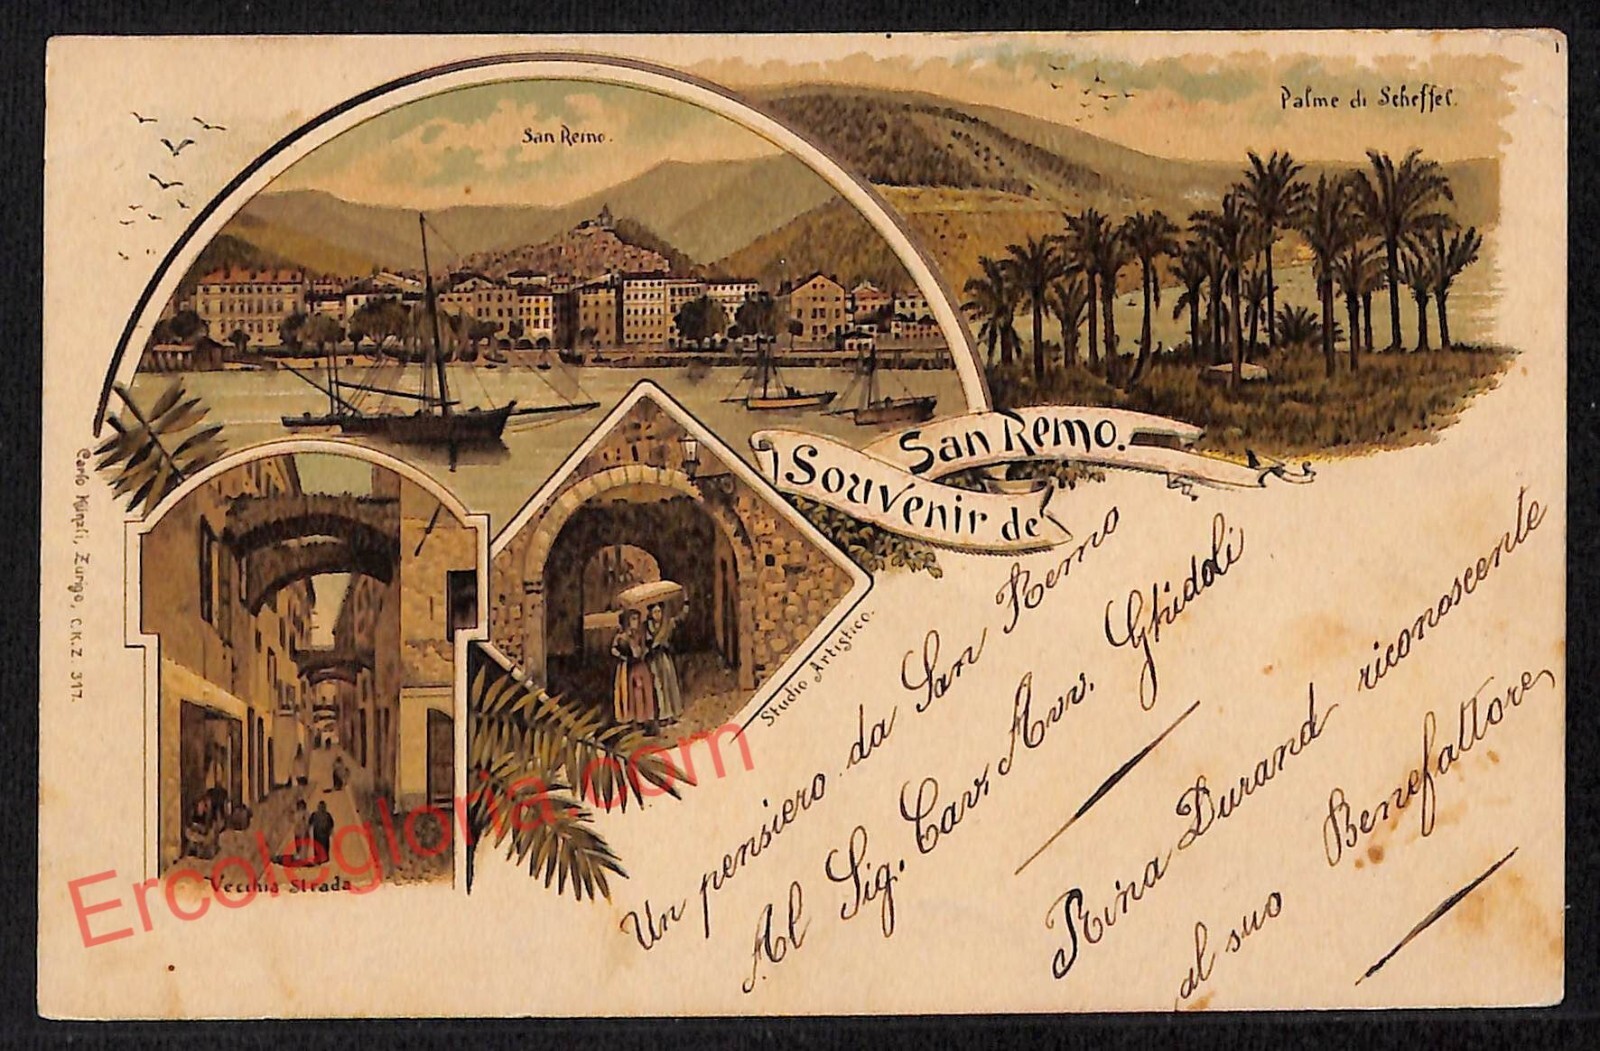 San Remo.
Palme di Scheffel.
Souvenir de
San Remo.
Carlo Künzli, Zurigo, C.K.Z. 317.
Studio Artistico.
Vecchia Strada
Un pensiero da San Remo
Al Sig. Cav. Avv. Ghidoli
Rina Durand riconoscente
al suo Benefattore,
Ercolegloria.com